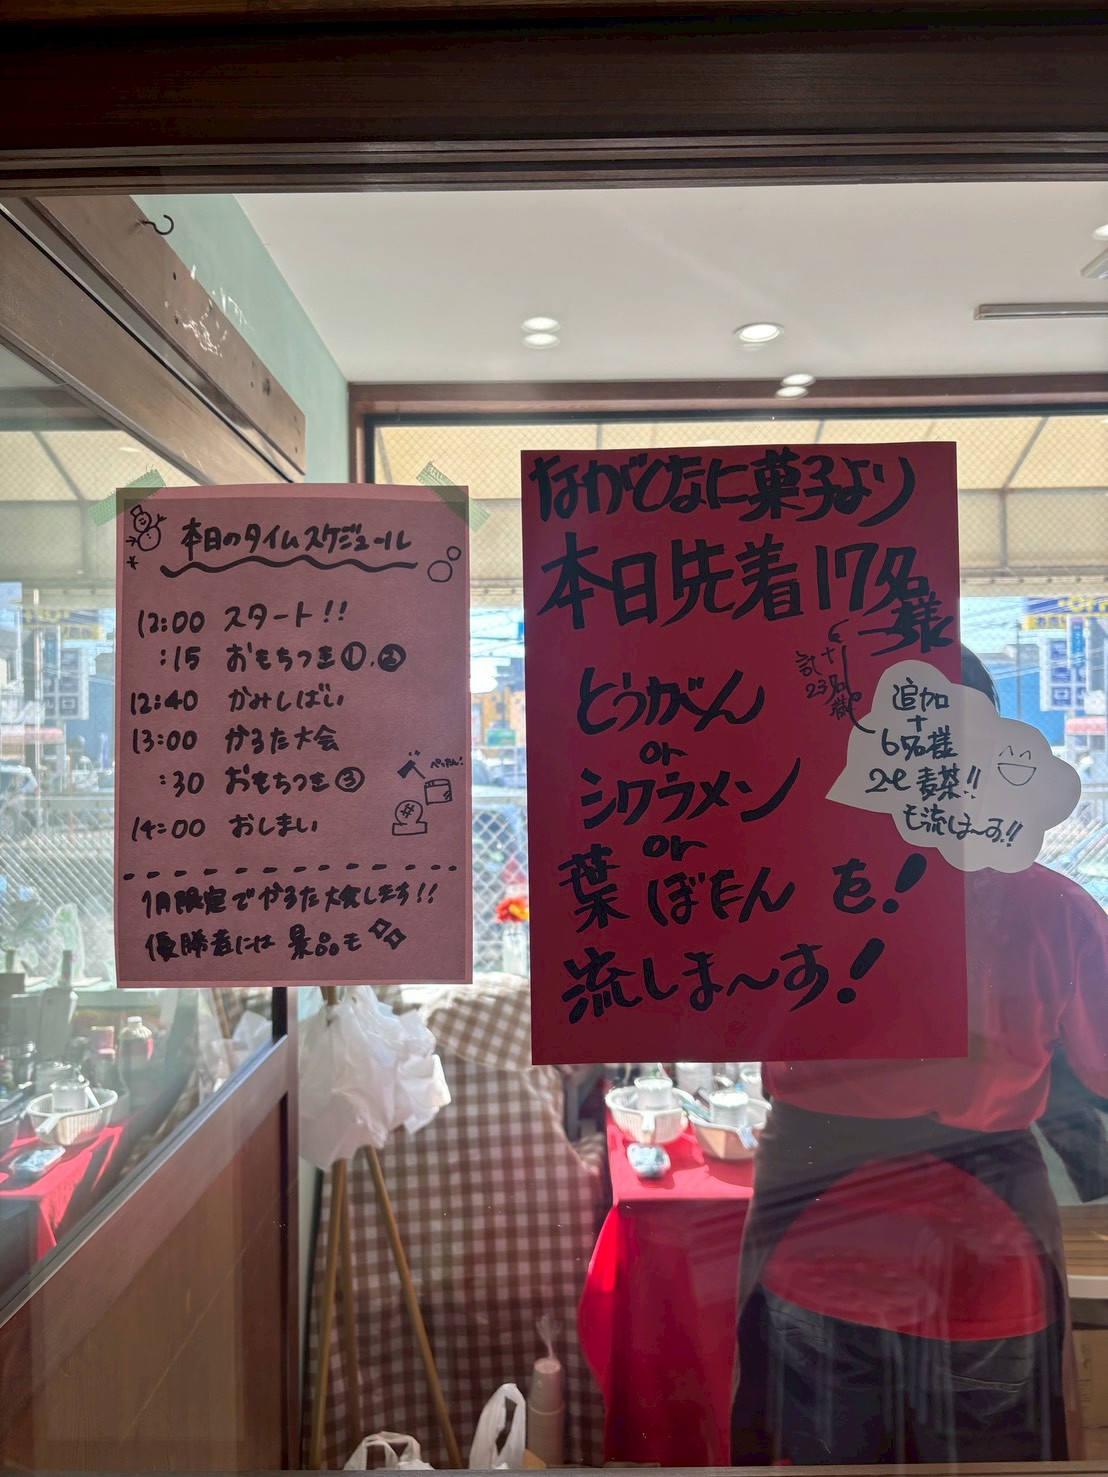 本日のタイムスケジュール
12:00 スタート!!
:15 おもちつき①.②
12:40 かみしばい
13:00 かるた大会
:30 おもちつき③
ぺったん!
14:00 おしまい
1月限定でかるた大会します!!
優勝者には景品も
本日先着17名様
十
計
23名様
とうがん
or
シクラメン
or
葉ぼたん を!
流しま〜す!
追加
+
6名様
2ℓ 麦茶!!
も流しま〜す!!